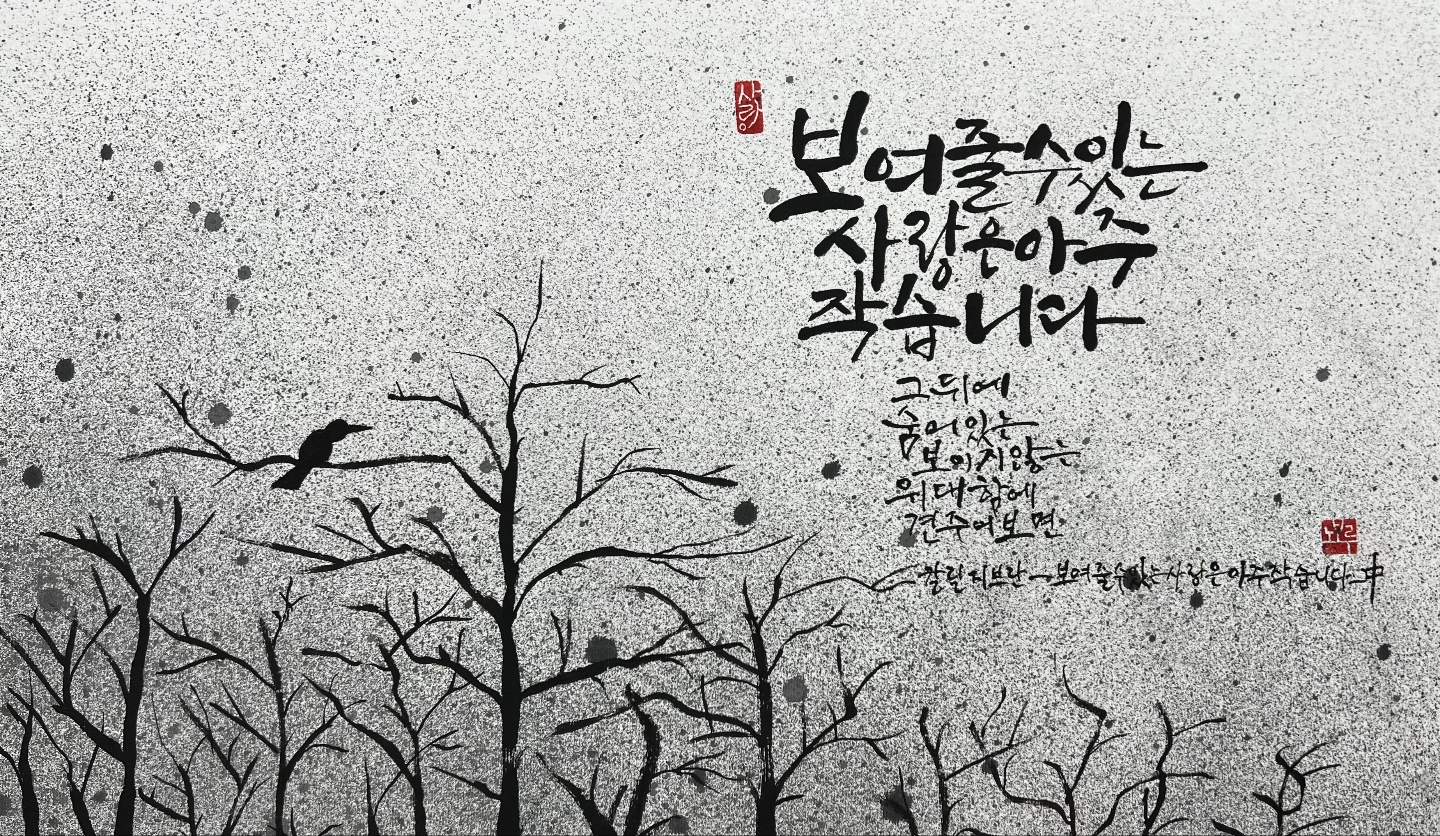 사랑
보여줄수있는
사랑은아주
작습니다
그뒤에
숨어있는
보이지않는
위대함에
견주어보면
칼릴지브란ㅡ보여줄수있는사랑은아주작습니다ㅡ中